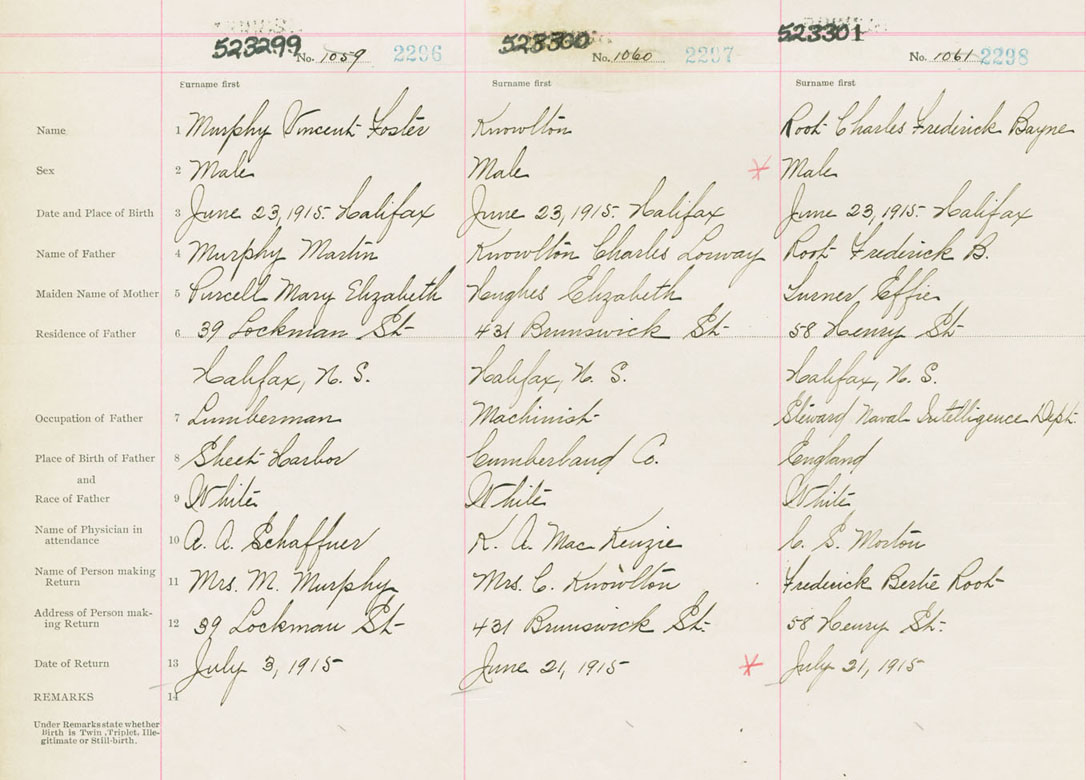 523299 523300 523301
No. 1059 2296 No. 1060 2297 No. 1061 2298
Surname first Surname first Surname first
Name 1 Murphy Vincent Foster Knowlton Root Charles Frederick Bayne
Sex 2 Male Male Male
Date and Place of Birth 3 June 23, 1915. Halifax June 23, 1915. Halifax June 23, 1915. Halifax
Name of Father 4 Murphy Martin Knowlton Charles Root Frederick B.
Maiden Name of Mother 5 Purcell Mary Elizabeth Hughes Elizabeth Turner Effie
Residence of Father 6 39 Lockman St 431 Brunswick St 58 Henry St.
Halifax, N. S. Halifax, N. S. Halifax, N. S.
Occupation of Father 7 Lumberman Machinist Steward Naval Intelligence Dept.
Place of Birth of Father 8 Sheet Harbor Cumberland Co. England
and
Race of Father 9 White White White
Name of Physician in
attendance 10 A. A. Schaffner K. A. Mac Kenzie C. S. Morton
Name of Person making
Return 11 Mrs. M. Murphy Mrs. C. Knowlton Frederick Bertie Root
Address of Person mak-
ing Return 12 39 Lockman St 431 Brunswick St. 58 Henry St.
Date of Return 13 July 3, 1915 June 21, 1915 July 21, 1915
REMARKS 14
Under Remarks state whether
Birth is Twin, Triplet, Ille-
gitimate or Still-birth.